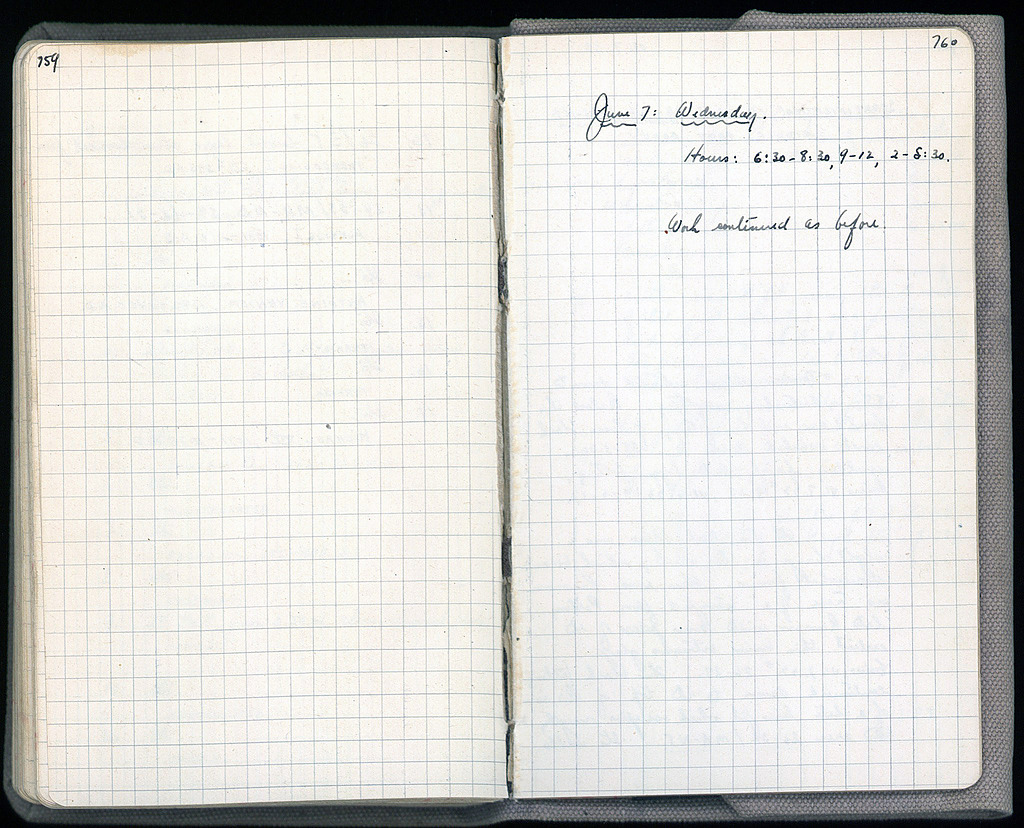 759
760
June 7: Wednesday.
Hours: 6:30-8:30, 9-12, 2-5:30.
Work continued as before.